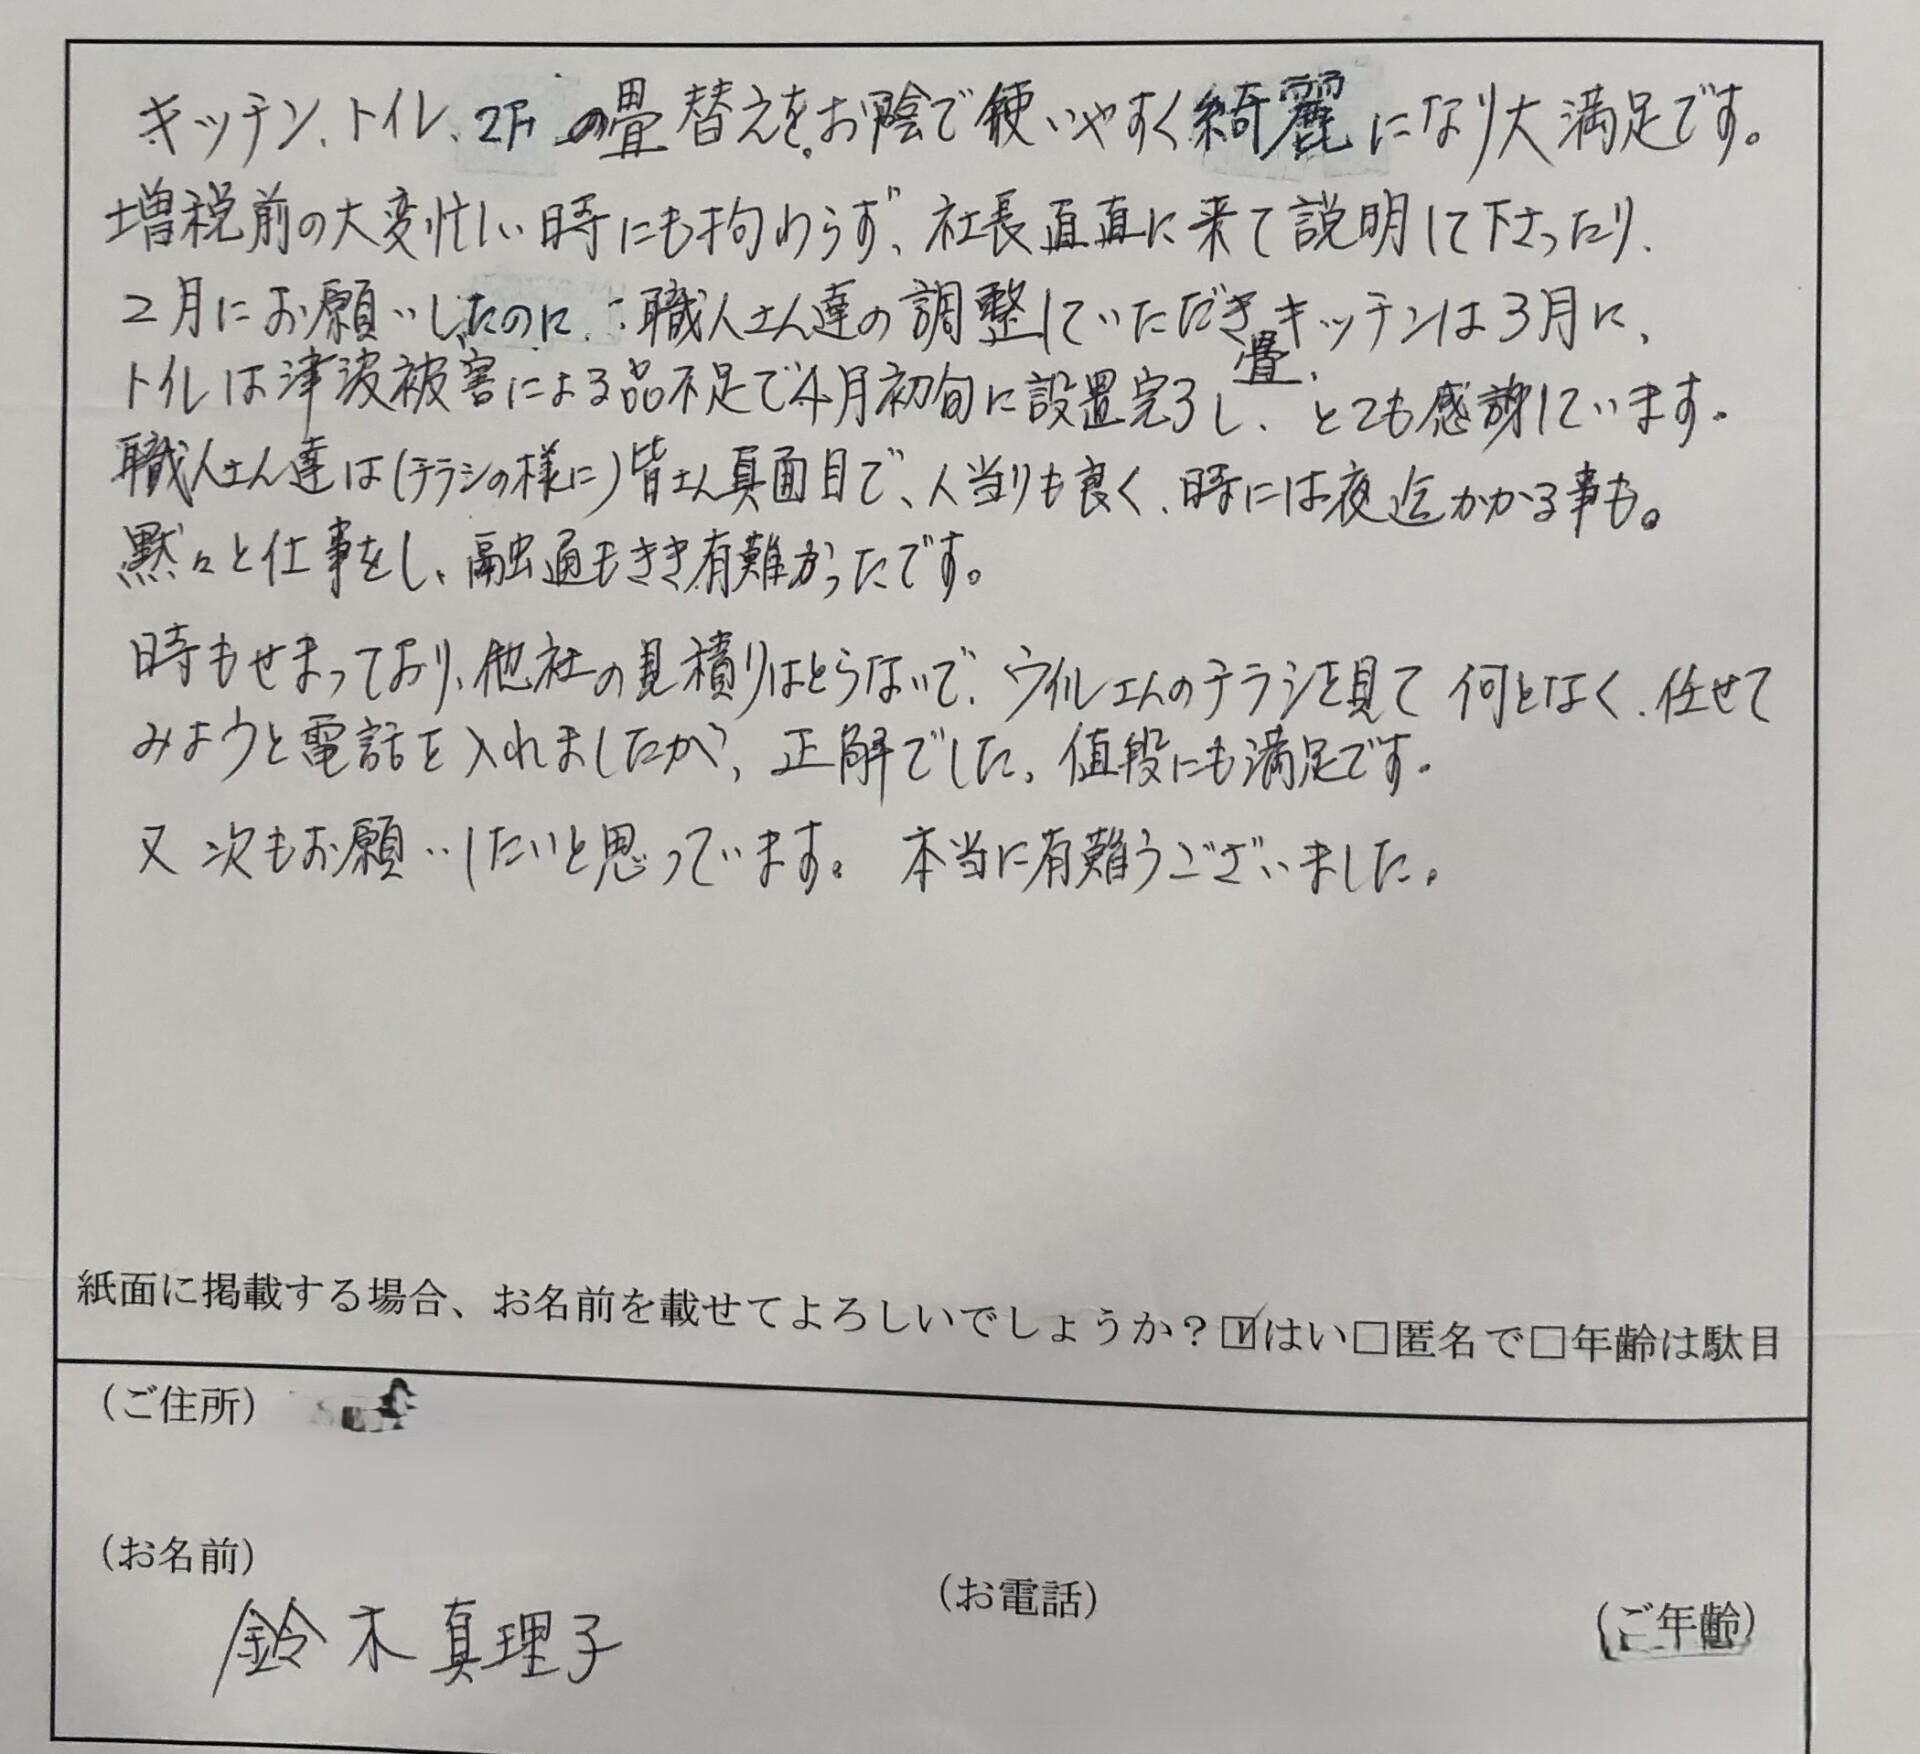 キッチン、トイレ、2Fの畳替えを。お陰で使いやすく綺麗になり大満足です。
増税前の大変忙しい時にも拘わらず、社長直直に来て説明して下さったり、
2月にお願いしたのに、職人さん達の調整していただき キッチンは3月に、
畳、
トイレは津波被害による品不足で4月初旬に設置完了し、とても感謝しています。
職人さん達は(チラシの様に)皆さん真面目で、人当りも良く、時には夜迄かかる事も。
黙々と仕事をし、融通もきき有難かったです。
時もせまっており、他社の見積りはとらないで、ウイルさんのチラシを見て 何となく、任せて
みようと電話を入れましたが、正解でした。値段にも満足です。
又 次もお願いしたいと思っています。 本当に有難うございました。
紙面に掲載する場合、お名前を載せてよろしいでしょうか?☑はい□匿名で□年齢は駄目
(ご住所)
(お名前)
(お電話)
(ご年齢)
鈴木真理子